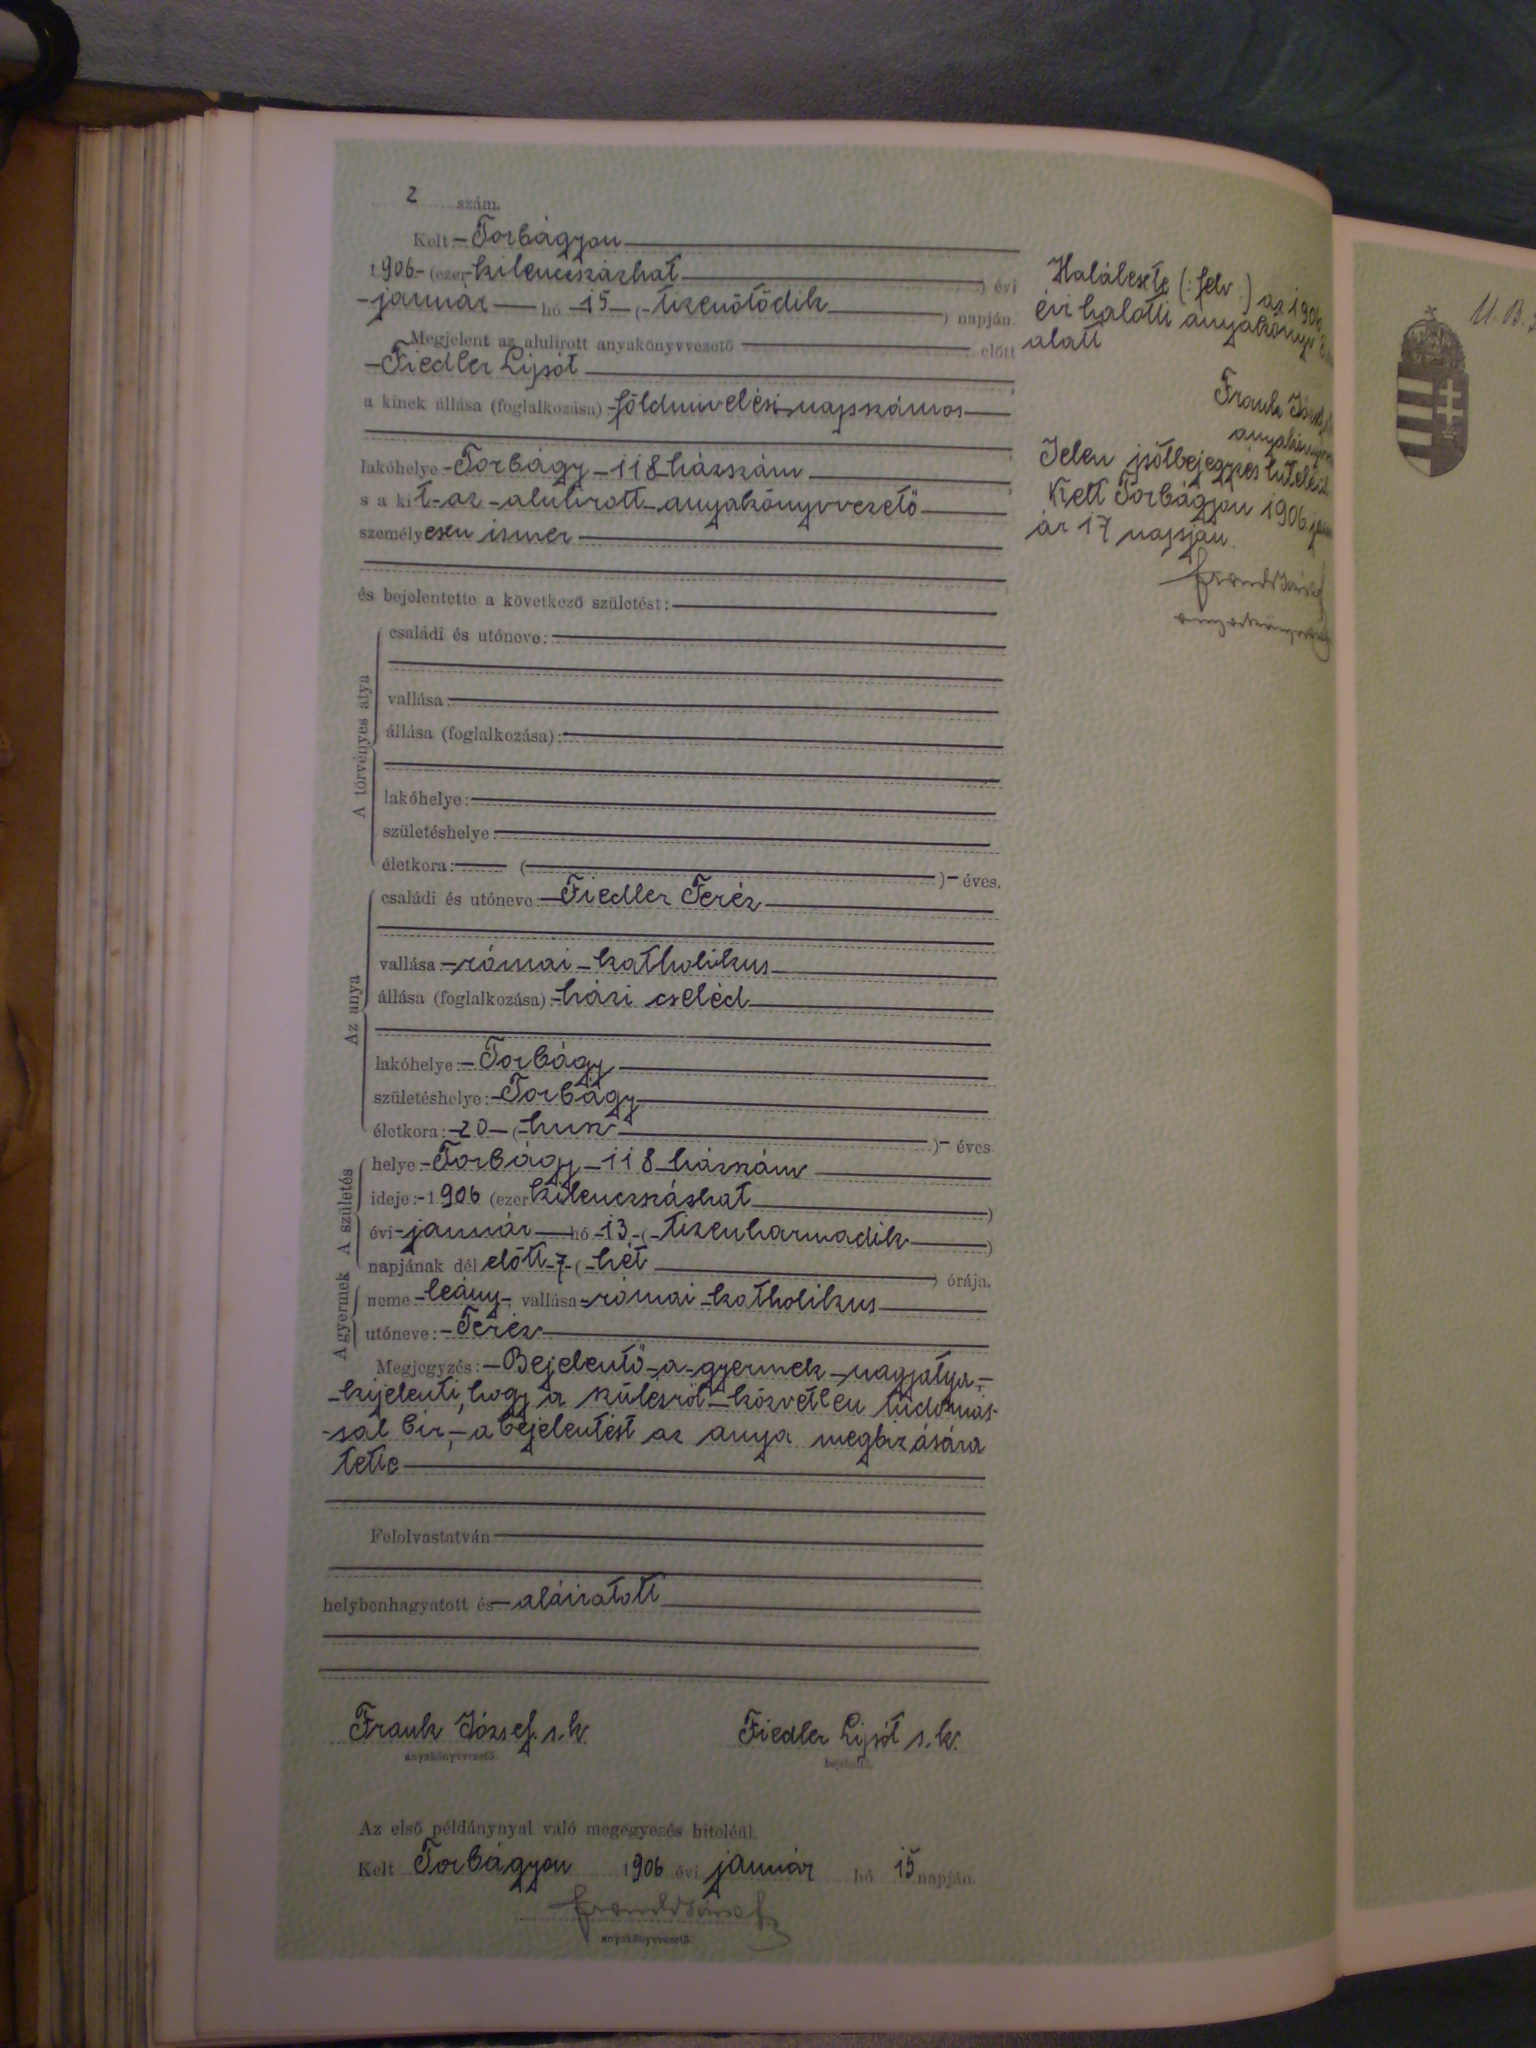 2 szám.
Kelt Torbágyon
1906 (ezer kilenczszázhat) évi
január hó 15 (tizenötödik) napján.
Megjelent az alulirott anyakönyvvezető előtt
Fiedler Lipót
a kinek állása (foglalkozása) földmivelési napszámos
lakóhelye Torbágy 118 házszám
s a kit az alulirott anyakönyvvezető
személyesen ismer
és bejelentette a következő születést:
A törvényes atya
családi és utóneve:
vallása:
állása (foglalkozása):
lakóhelye:
születéshelye:
életkora: ( ) éves.
Az anya
családi és utóneve: Fiedler Teréz
vallása római katholikus
állása (foglalkozása): házi cseléd
lakóhelye: Torbágy
születéshelye: Torbágy
életkora: 20 (husz) éves.
A születés
helye Torbágy 118 házszám
ideje: 1906 (ezer kilenczszázhat)
évi január hó 13 (tizenharmadik)
napjának dél előtt 7 (hét) órája.
A gyermek
neme leány, vallása római katholikus
utóneve: Teréz
Megjegyzés: Bejelentő a gyermek nagyatya,
kijelenti, hogy a szülésről közvetlen tudomás-
sal bir, a bejelentést az anya megbizására
tette
Felolvastatván
helybenhagyatott és aláiratott
Frank József s. k.
anyakönyvvezető.
Fiedler Lipót s. k.
bejelentő.
Az első példánynyal való megegyezés hiteléül.
Kelt Torbágyon 1906 évi január hó 15 napján.
Frank József
anyakönyvvezető.
Halálesete (: felv :) az 1906
évi halotti anyakönyv
alatt
Frank József
Jelen utóbejegyzés hiteléül
Kelt Torbágyon 1906. janu
ár 17 napján.
Frank József